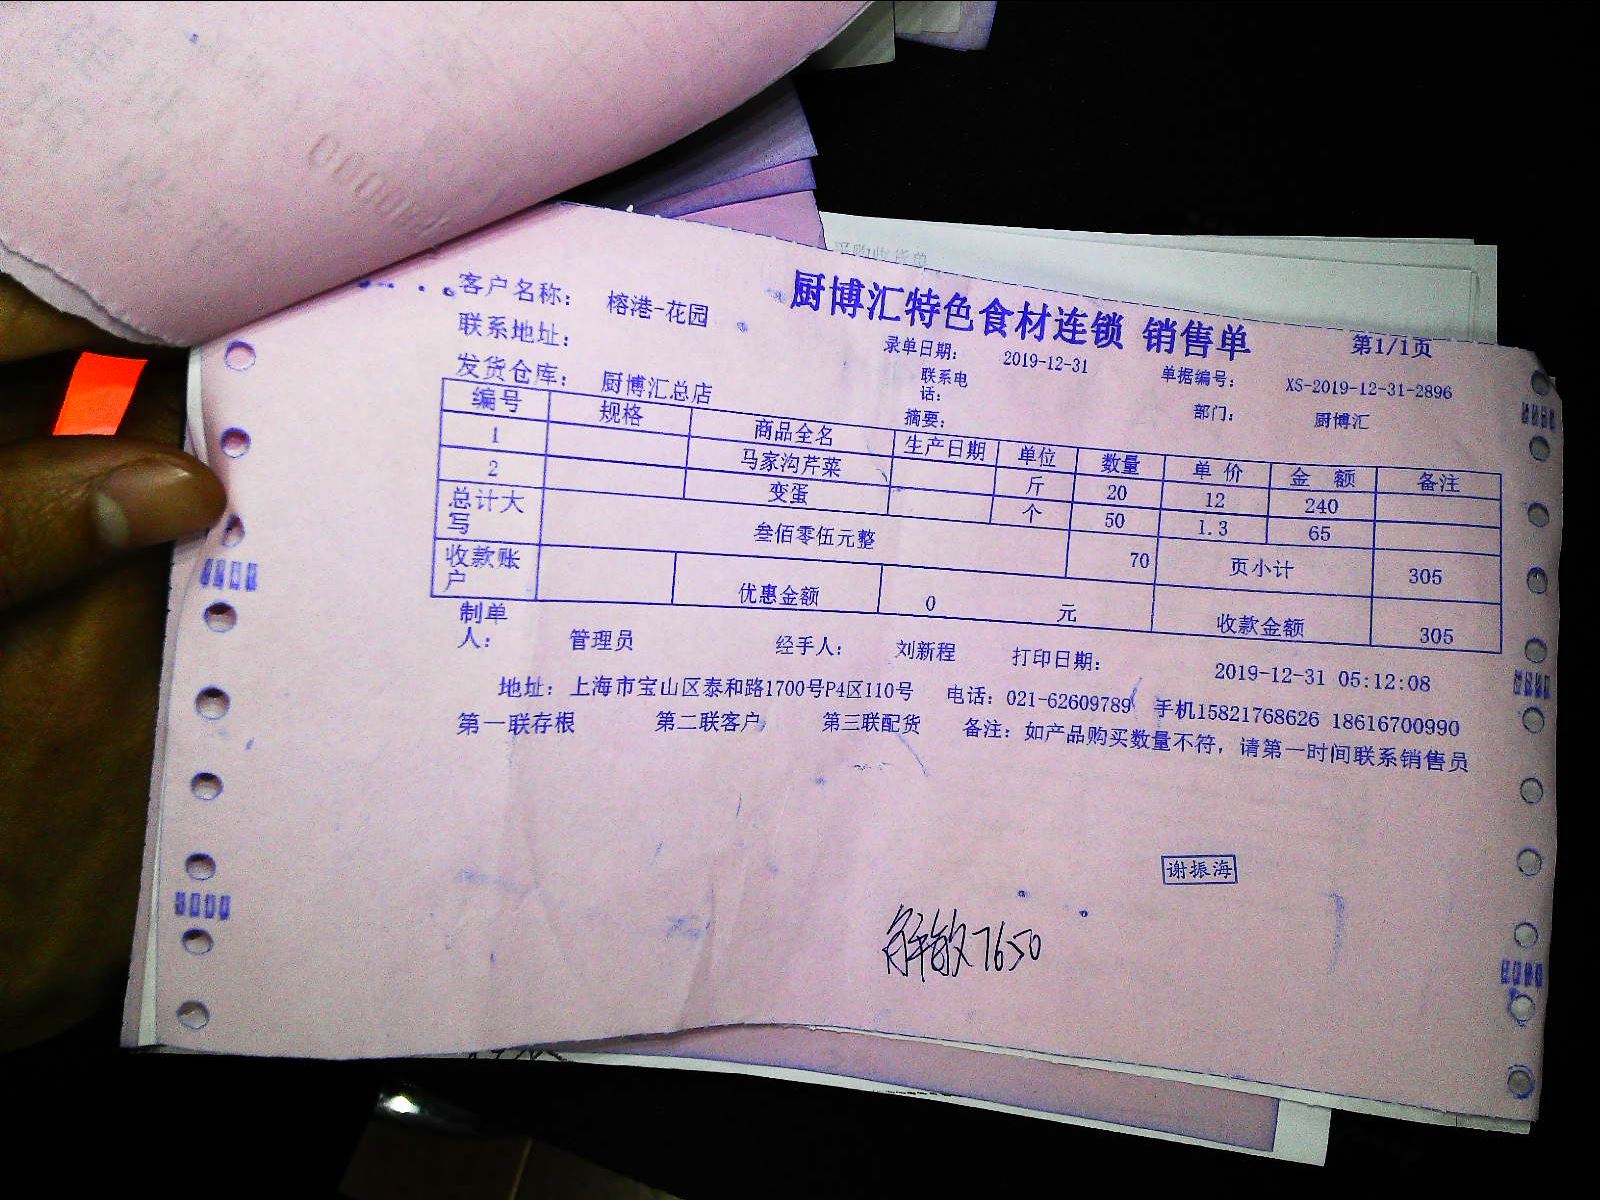 厨博汇特色食材连锁 销售单
第1/1页
客户名称： 榕港-花园
录单日期： 2019-12-31 单据编号： XS-2019-12-31-2896
联系地址：
联系电话：
部门： 厨博汇
发货仓库： 厨博汇总店
摘要：
编号 规格 商品全名 生产日期 单位 数量 单价 金额 备注
1 马家沟芹菜 斤 20 12 240
2 变蛋 个 50 1.3 65
总计大写 叁佰零伍元整 70 页小计 305
收款账户 优惠金额 0 元 收款金额 305
制单人： 管理员 经手人： 刘新程 打印日期： 2019-12-31 05:12:08
地址：上海市宝山区泰和路1700号P4区110号 电话：021-62609789 手机15821768626 18616700990
第一联存根 第二联客户 第三联配货 备注：如产品购买数量不符，请第一时间联系销售员
谢振海
解敏7650
采购收货单